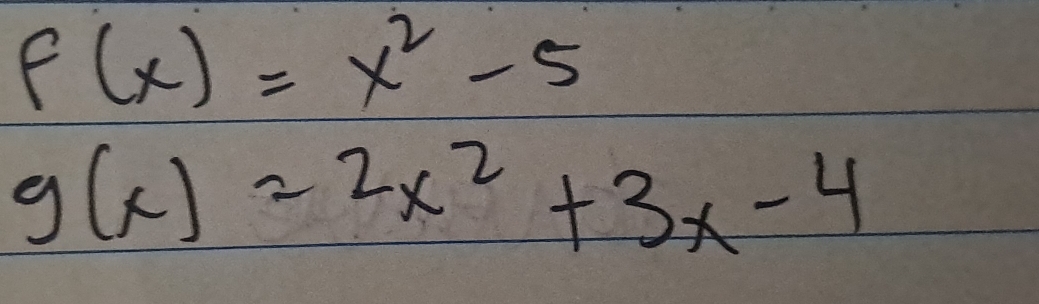 f(x) = x² - 5
g(x) = 2x² + 3x - 4